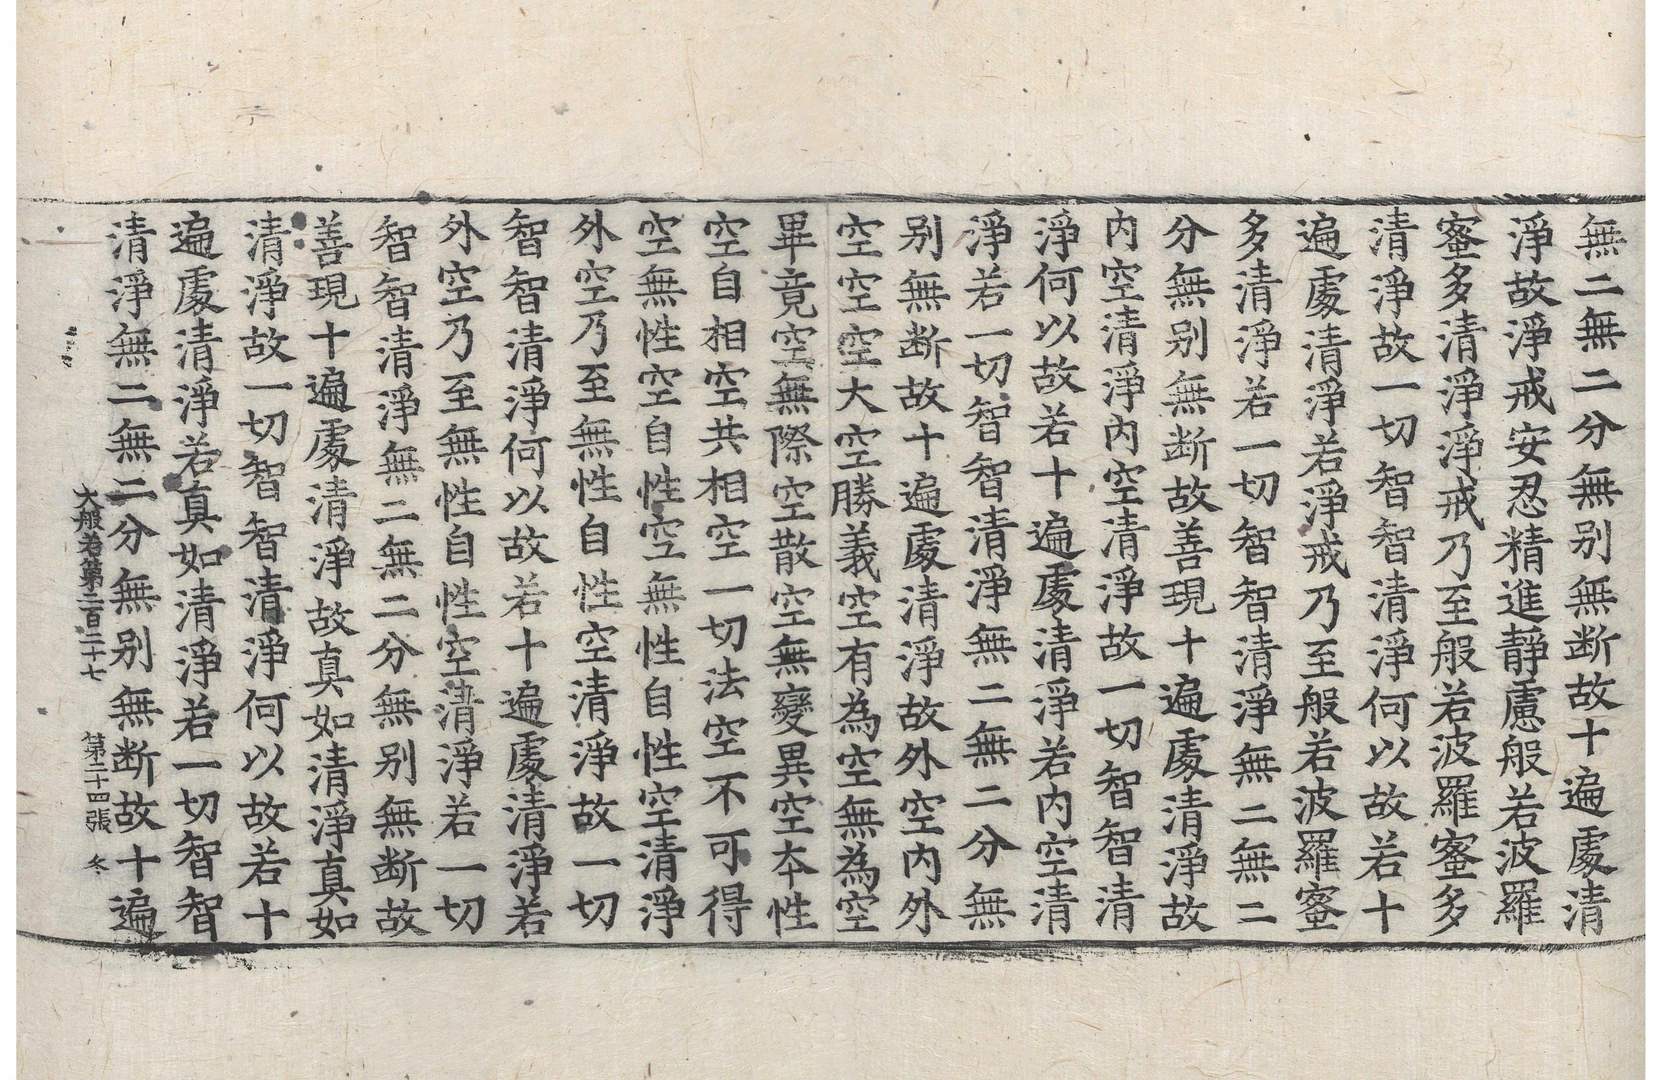 無二無二分無别無断故十遍處清
淨故淨戒安忍精進靜慮般若波羅
蜜多清淨淨戒乃至般若波羅蜜多
清淨故一切智智清淨何以故若十
遍處清淨若淨戒乃至般若波羅蜜
多清淨若一切智智清淨無二無二
分無别無断故善現十遍處清淨故
内空清淨内空清淨故一切智智清
淨何以故若十遍處清淨若内空清
淨若一切智智清淨無二無二分無
别無断故十遍處清淨故外空内外
空空空大空勝義空有為空無為空
畢竟空無際空散空無變異空本性
空自相空共相空一切法空不可得
空無性空自性空無性自性空清淨
外空乃至無性自性空清淨故一切
智智清淨何以故若十遍處清淨若
外空乃至無性自性空清淨若一切
智智清淨無二無二分無别無断故
善現十遍處清淨故真如清淨真如
清淨故一切智智清淨何以故若十
遍處清淨若真如清淨若一切智智
清淨無二無二分無别無断故十遍
大般若第二百二十七 第二十四張 冬